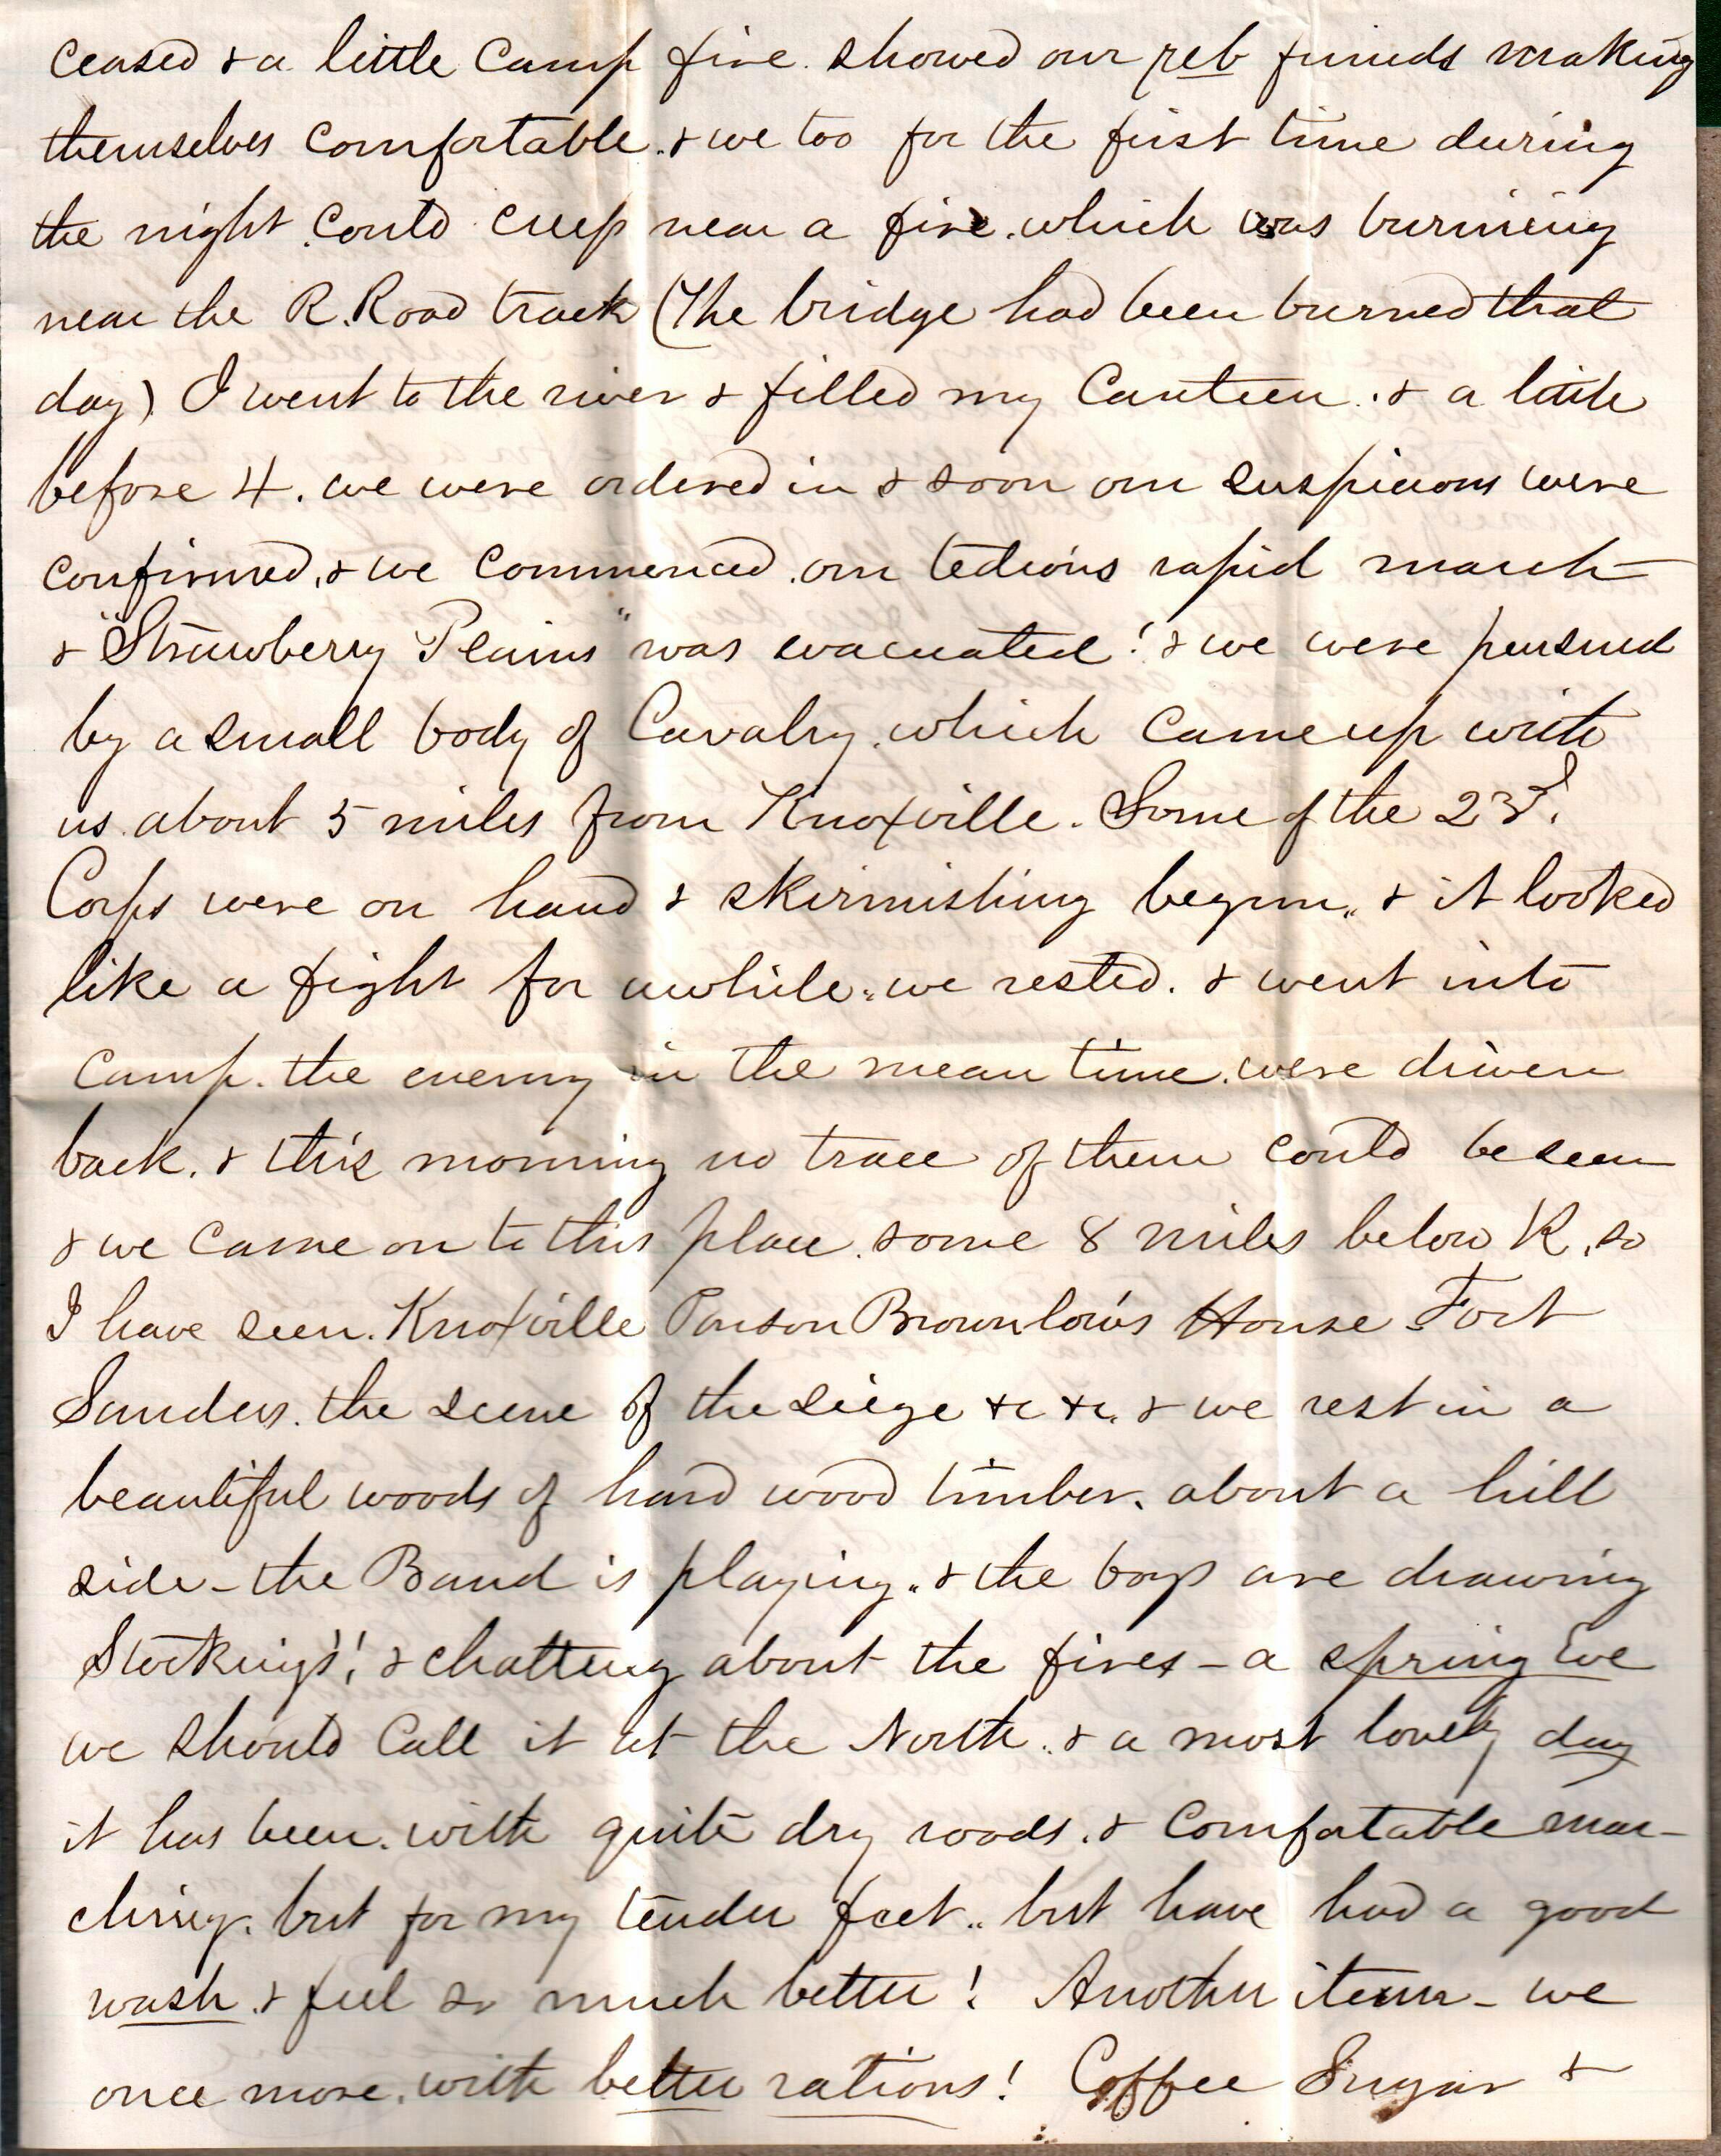 ceased & a little camp fire. showed our reb friends making
themselves comfortable. & we too for the first time during
the night could creep near a fire. which was burning
near the R. Road track (The bridge had been burned that
day) I went to the river & filled my Canteen. & a little
before 4. we were ordered in & soon our suspicions were
confirmed, & we commenced. our tedious rapid march
& "Strawberry Plains" was evacuated! & we were pursued
by a small body of Cavalry. which came up with
us. about 5 miles from Knoxville. Some of the 23d.
Corps were on hand & skirmishing begun,, & it looked
like a fight for awhile. we rested. & went into
camp. the enemy in the mean time. were driven
back. & this morning no trace of them could be seen
& we came on to this place. some 8 miles below K, so
I have seen. Knoxville Parson Brownlow's House Fort
Sanders. the scene of the siege &c &c. & we rest in a
beautiful woods of hard wood timber. about a hill
side - the Band is playing,, & the boys are drawing
Stockings'! & chatting about the fires - a spring Eve
we should call it at the North. & a most lovely day
it has been. with quite dry roads. & comfortable mar-
ching. but for my tender feet.. but have had a good
wash. & feel so much better! Another item - we
once more. with better rations! Coffee Sugar &